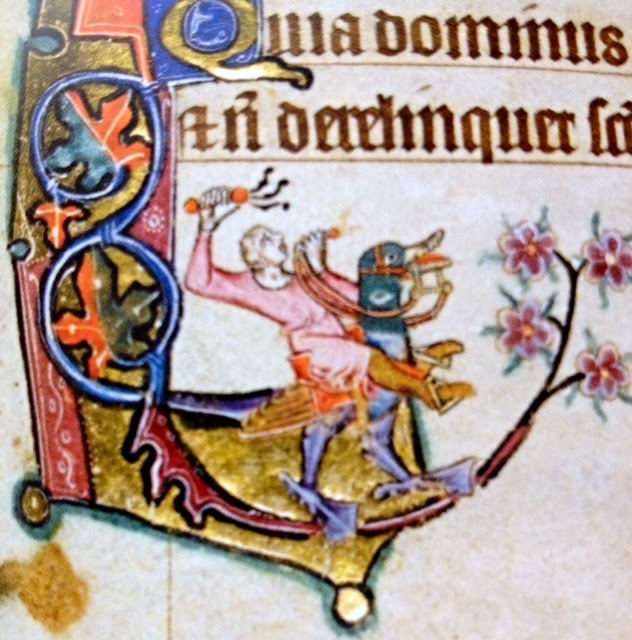 Quia dominus
& ñ derelinquet